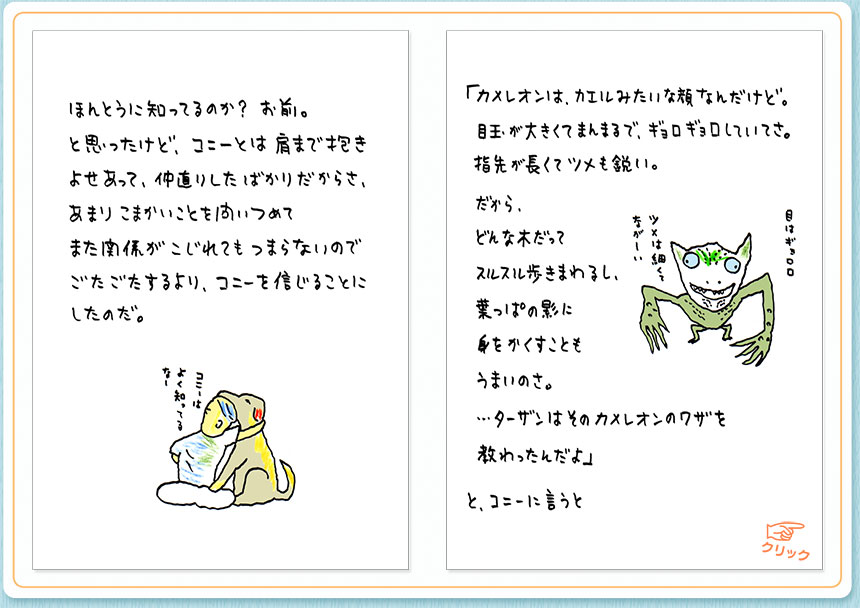 ほんとうに知ってるのか? お前。
と思ったけど、コニーとは肩まで抱き
よせあって、仲直りしたばかりだからさ、
あまりこまかいことを問いつめて
また関係がこじれてもつまらないので
ごたごたするより、コニーを信じることに
したのだ。
コニーは
よく知ってる
なー
「カメレオンは、カエルみたいな顔なんだけど。
目玉が大きくてまんまるで、ギョロギョロしていてさ。
指先が長くてツメも鋭い。
だから、
どんな木だって
スルスル歩きまわるし、
葉っぱの影に
身をかくすことも
うまいのさ。
…ターザンはそのカメレオンのワザを
教わったんだよ」
と、コニーに言うと
目はギョロロ
ツメは細くて
ながーい
クリック